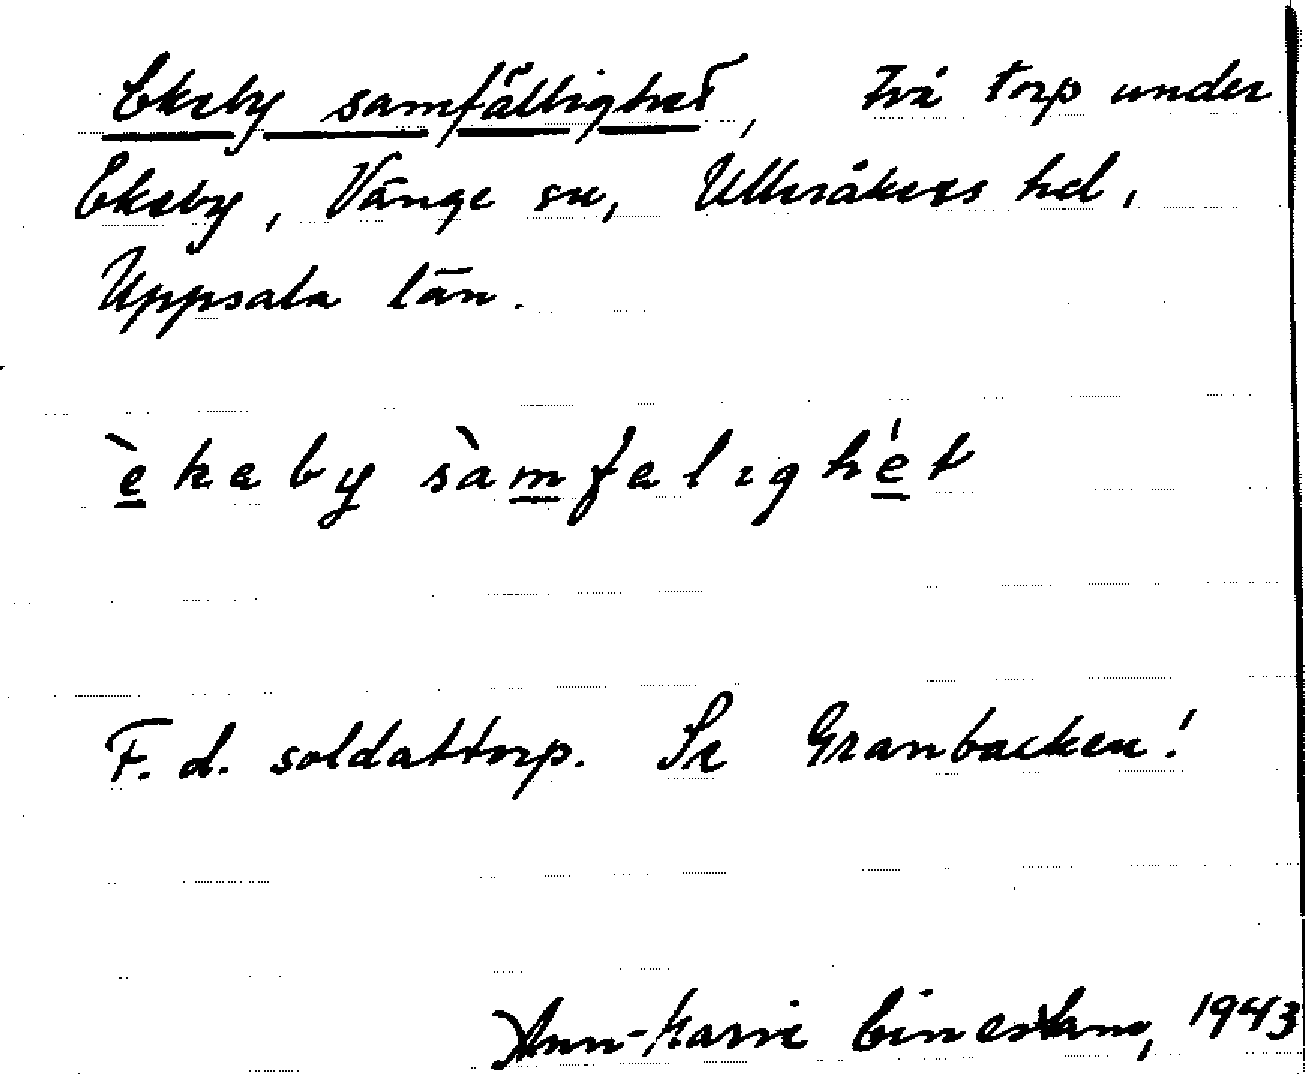 Ekeby samfällighet, två torp under
Ekeby, Vänge sn, Ulleråkers hd,
Uppsala län.
èkeby sàmfelighét
F. d. soldattorp. Se Granbacken!
Ann-Marie 1943